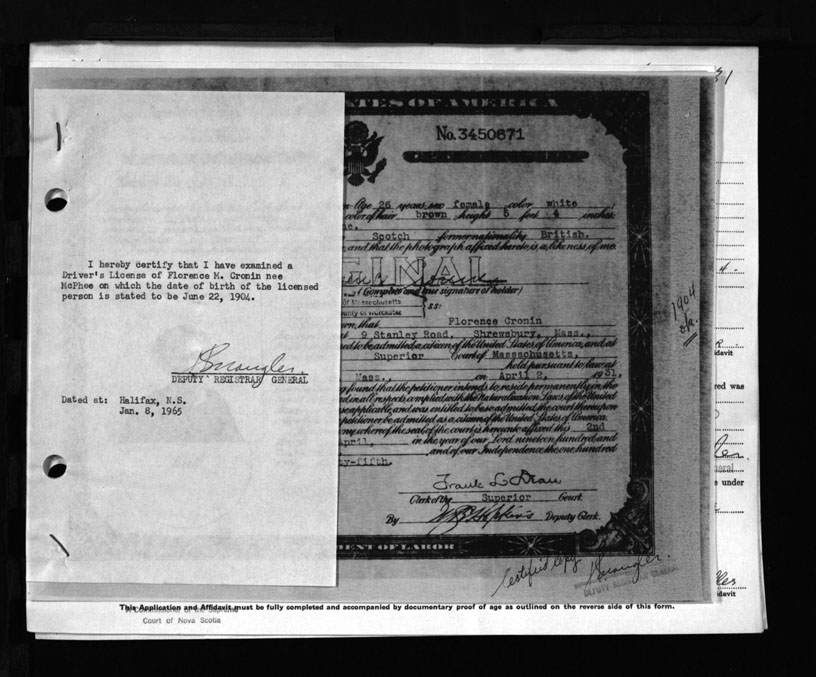 I hereby certify that I have examined a
Driver's License of Florence M. Cronin nee
McPhee on which the date of birth of the licensed
person is stated to be June 22, 1904.
DEPUTY REGISTRAR GENERAL
Dated at: Halifax, N.S.
Jan. 8, 1965
TES OF AMERICA
No. 3450871
Age 26 years, sex female color white
color of hair brown height 5 feet 4 inches
Scotch former nationality British.
and that the photograph affixed hereto is a likeness of me.
INAL
(Complete and true signature of holder)
of Massachusetts
ss:
unty of Worcester
wn, that Florence Cronin
9 Stanley Road, Shrewsbury, Mass.,
ed to be admitted a citizen of the United States of America, and at
Superior Court of Massachusetts,
held pursuant to law at
Mass., on April 2, 1931,
g found that the petitioner intends to reside permanently in the
d in all respects complied with the Naturalization Laws of the United
se applicable, and was entitled to be so admitted, the court thereupon
petitioner be admitted as a citizen of the United States of America.
ny whereof the seal of the court is hereunto affixed this 2nd
April, in the year of our Lord nineteen hundred and
and of our Independence the one hundred
ty-fifth.
Clerk of the Superior Court.
By Deputy Clerk.
ENT OF LABOR
Certified copy
DEPUTY REGISTRAR GENERAL
1904
davit
red was
neral
e under
davit
This Application and Affidavit must be fully completed and accompanied by documentary proof of age as outlined on the reverse side of this form.
A Commissioner of the Supreme
Court of Nova Scotia